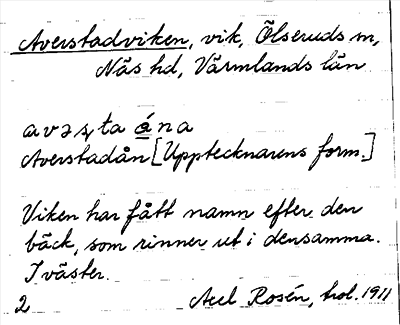 Averstadviken, vik, Ölseruds sn,
Näs hd, Värmlands län
avəṣta ána
Averstadån [Upptecknarens form.]
Viken har fått namn efter den
bäck, som rinner ut i densamma.
I väster.
2 Axel Rosén, trol. 1911